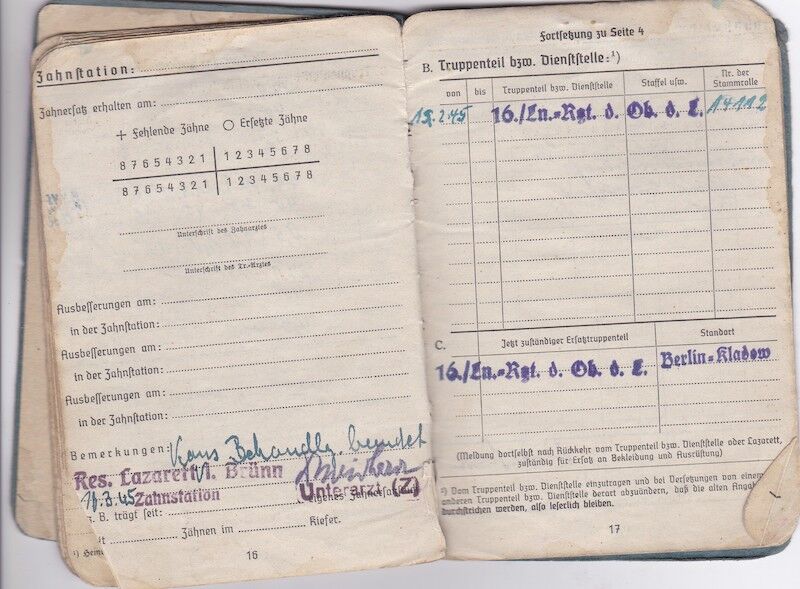 Zahnstation:
Zahnersatz erhalten am:
+ Fehlende Zähne O Ersetzte Zähne
8 7 6 5 4 3 2 1 | 1 2 3 4 5 6 7 8
8 7 6 5 4 3 2 1 | 1 2 3 4 5 6 7 8
Unterschrift des Zahnarztes
Unterschrift des Tr.-Arztes
Ausbesserungen am:
in der Zahnstation:
Ausbesserungen am:
in der Zahnstation:
Ausbesserungen am:
in der Zahnstation:
Bemerkungen: Kons Behandlg. beendet
Res. Lazarett I. Brünn
3.45 Zahnstation Unterarzt (Z)
z. B. trägt seit: eigenes
Zähnen im Kiefer.
16
Fortsetzung zu Seite 4
B. Truppenteil bzw. Dienststelle:¹)
von bis Truppenteil bzw. Dienststelle Staffel usw. Nr. der Stammrolle
2.45 16./Ln.-Rgt. d. Ob. d. L. 14112
C. Jetzt zuständiger Ersatztruppenteil Standort
16./Ln.-Rgt. d. Ob. d. L. Berlin-Kladow
(Meldung dortselbst nach Rückkehr vom Truppenteil bzw. Dienststelle oder Lazarett,
zuständig für Ersatz an Bekleidung und Ausrüstung)
¹) Vom Truppenteil bzw. Dienststelle einzutragen und bei Versetzungen von einem
anderen Truppenteil bzw. Dienststelle derart abzuändern, daß die alten
durchstrichen werden, also leserlich bleiben.
17